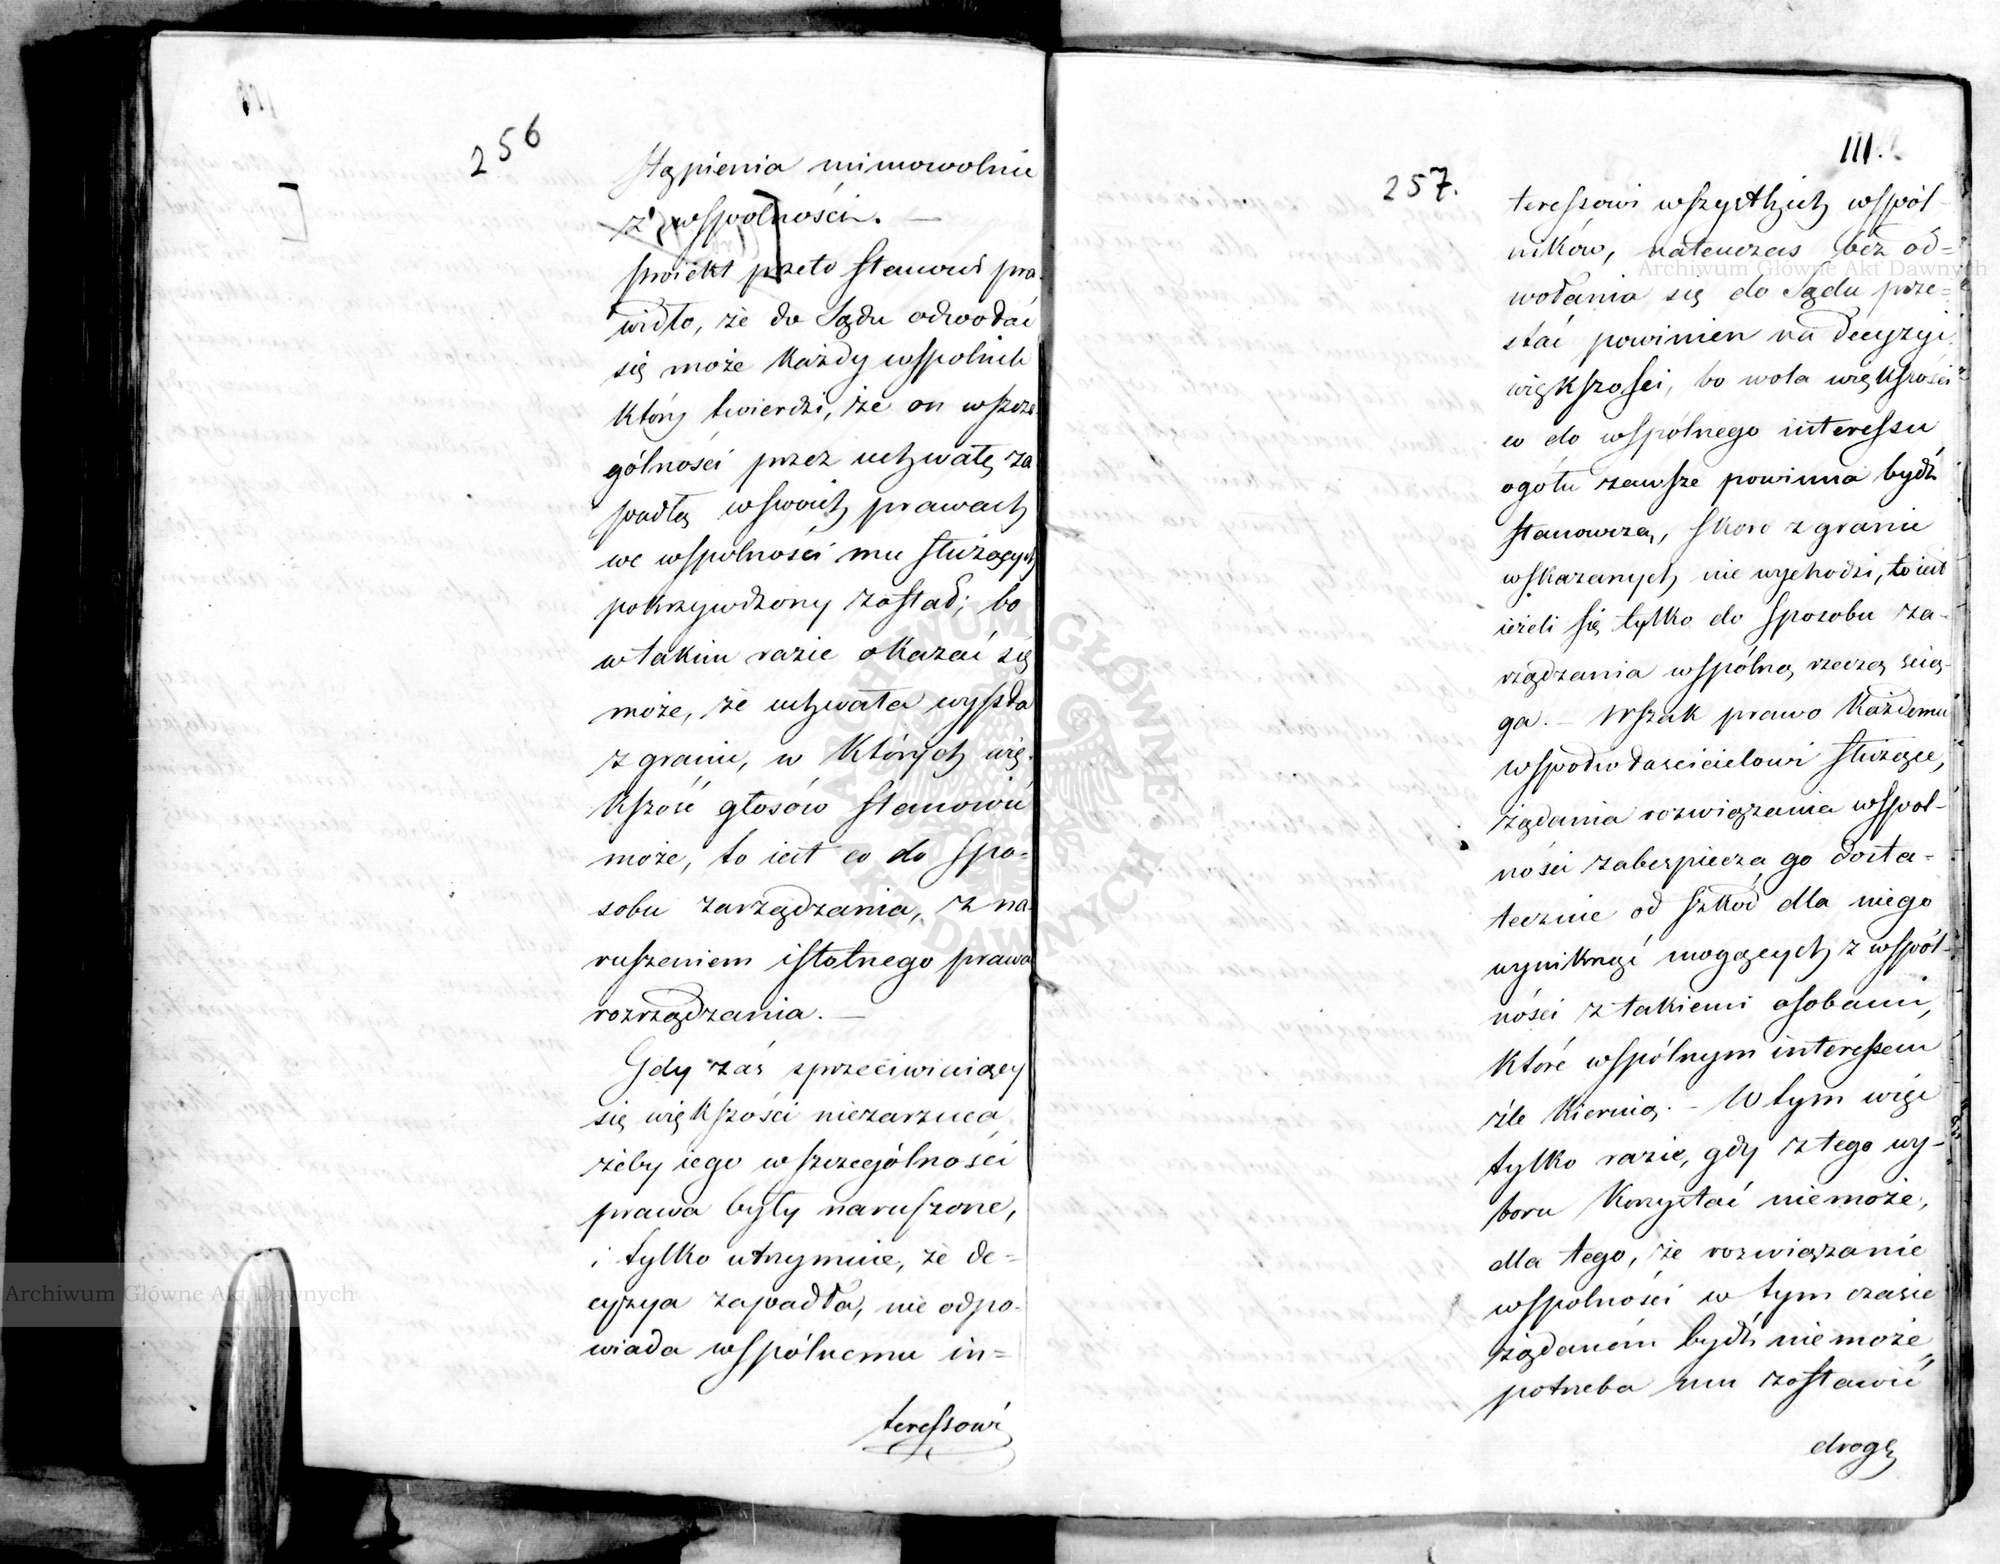 256
stąpienia mimowolnie
z wspolności. —
Proiekt przeto stanowi pra-
widło, że do Sądu odwołać
się może każdy wspolnik
który twierdzi, że on wszcze-
gólności przez uchwałę za
padłą w swoich prawach
we wspolności mu służących
pokrzywdzony został; bo
w takim razie okazać się
może, że uchwała wyszła
z granic, w których wię-
kszość głosów stanowić
może, to iest co do spo-
sobu zarządzania, z na-
ruszeniem istotnego prawa
rozrządzania. —
Gdy zaś sprzeciwiaiący
się większości niezarzuca
żeby iego w szczególności
prawa były naruszone,
i tylko utrzymuie, że de-
cyzya zapadła, nie odpo-
wiada wspólnemu in-
teressowi
III.
257.
teressowi wszystkich wspól-
ników, natenczas bez od-
wołania się do Sądu prze-
stać powinien na decyzyi
większości, bo wola większości
co do wspólnego interessu
ogółu zawsze powinna bydź
stanowczą, skoro z granic
wskazanych nie wychodzi, to iest
ieżeli się tylko do sposobu za-
rządzania wspólną rzeczą ścią-
ga. — Wszak prawo każdemu
wspołwłaścicielowi służące,
żądania rozwiązania wspol-
ności zabezpiecza go dosta-
tecznie od szkod dla niego
wyniknąć mogących z wspól-
ności z takiemi osobami,
które wspólnym interessem
źle kieruią. — W tym więc
tylko razie, gdy z tego wy-
boru korzystać nie może,
dla tego, że rozwiązanie
wspolności w tym czasie
żądaném bydź nie może,
potrzeba mu zostawić
drogę
Archiwum Główne Akt Dawnych
Archiwum Główne Akt Dawnych
ARCHIWUM GŁÓWNE AKT DAWNYCH